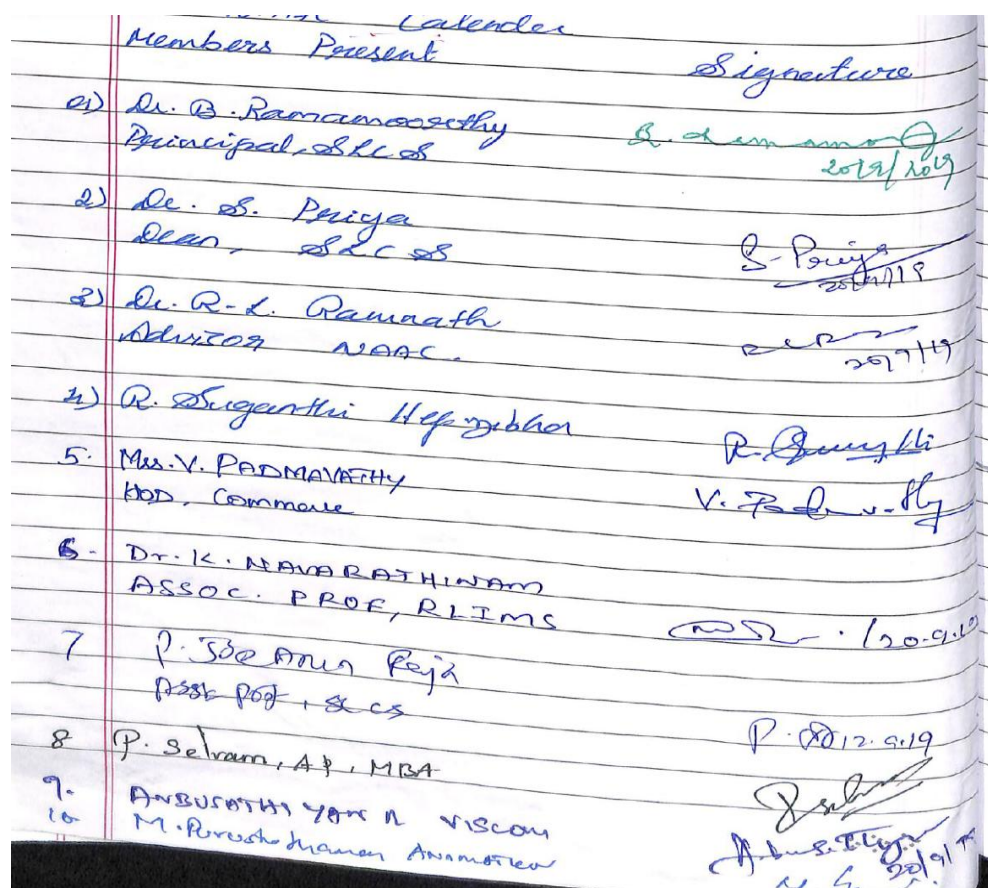 Calender
Members Present Signature
01) Dr. B. Ramamoorthy
Principal, SLCS B. Ramamo
20/9/2019
2) Dr. S. Priya
Dean, SLCS S. Priya
20/9/19
3) Dr. R.L. Ramnath
Advisor NAAC. RLR
20/9/19
4) R. Suganthi Hepzibha
R. Suganthi
5. Mrs. V. PADMAVATHY V. Padmavathy
HOD, Commerce
6. Dr. K. NAVARATHINAM
ASSOC. PROF, RLIMS . /20.9.19
7 P. Joe Arun Raja
Asst Prof, SLCS P. 12.9.19
8 P. Selvam, AP, MBA
9. ANBUSATHIYAN R VISCOM 20/9/19
10 M. Purushothaman Animation